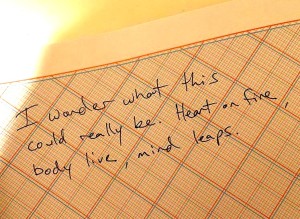 I wonder what this
could really be. Heart on fire,
body live, mind leaps.